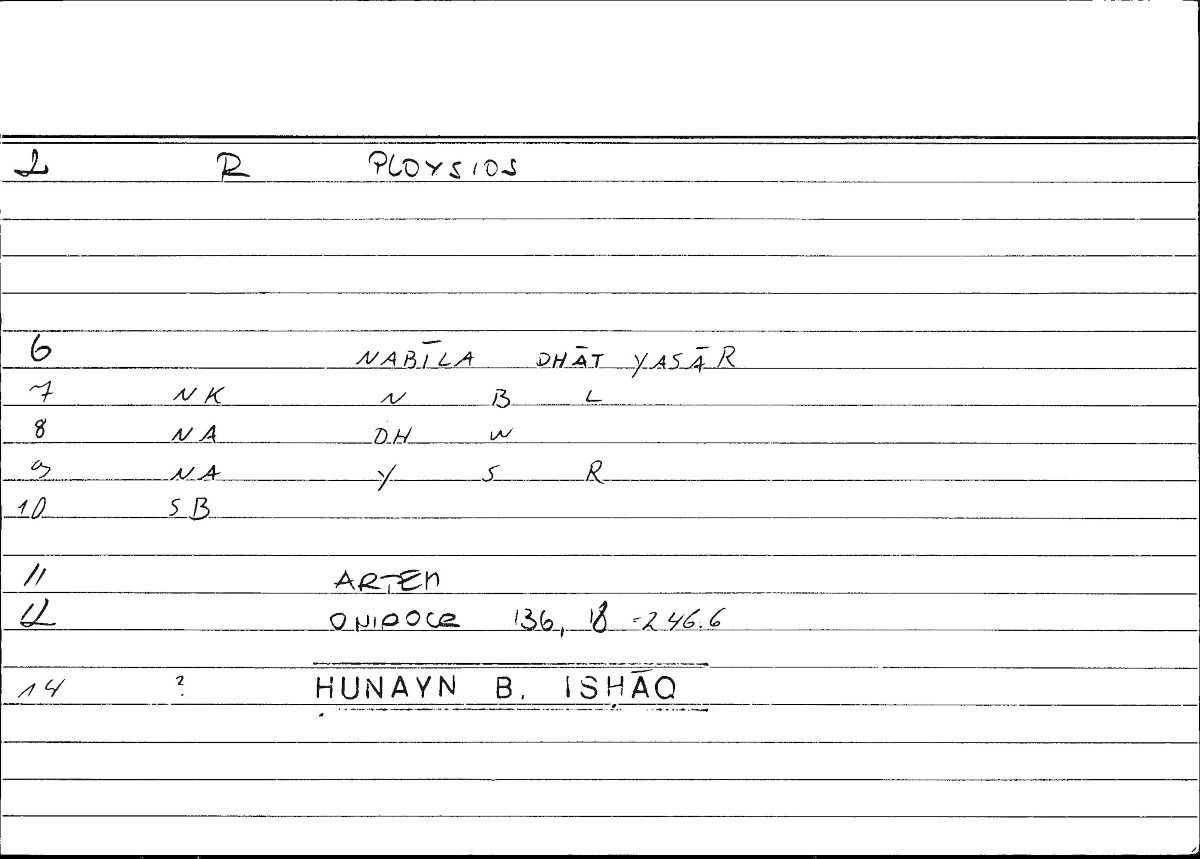 2 R PLOYSIOS
6 NABĪLA DHĀT YASĀR
7 NK N B L
8 NA DH W
9 NA Y S R
10 SB
11 ARTEM
12 ONIROCR 136, 18 =246.6
14 ? ḤUNAYN B. ISḤĀQ